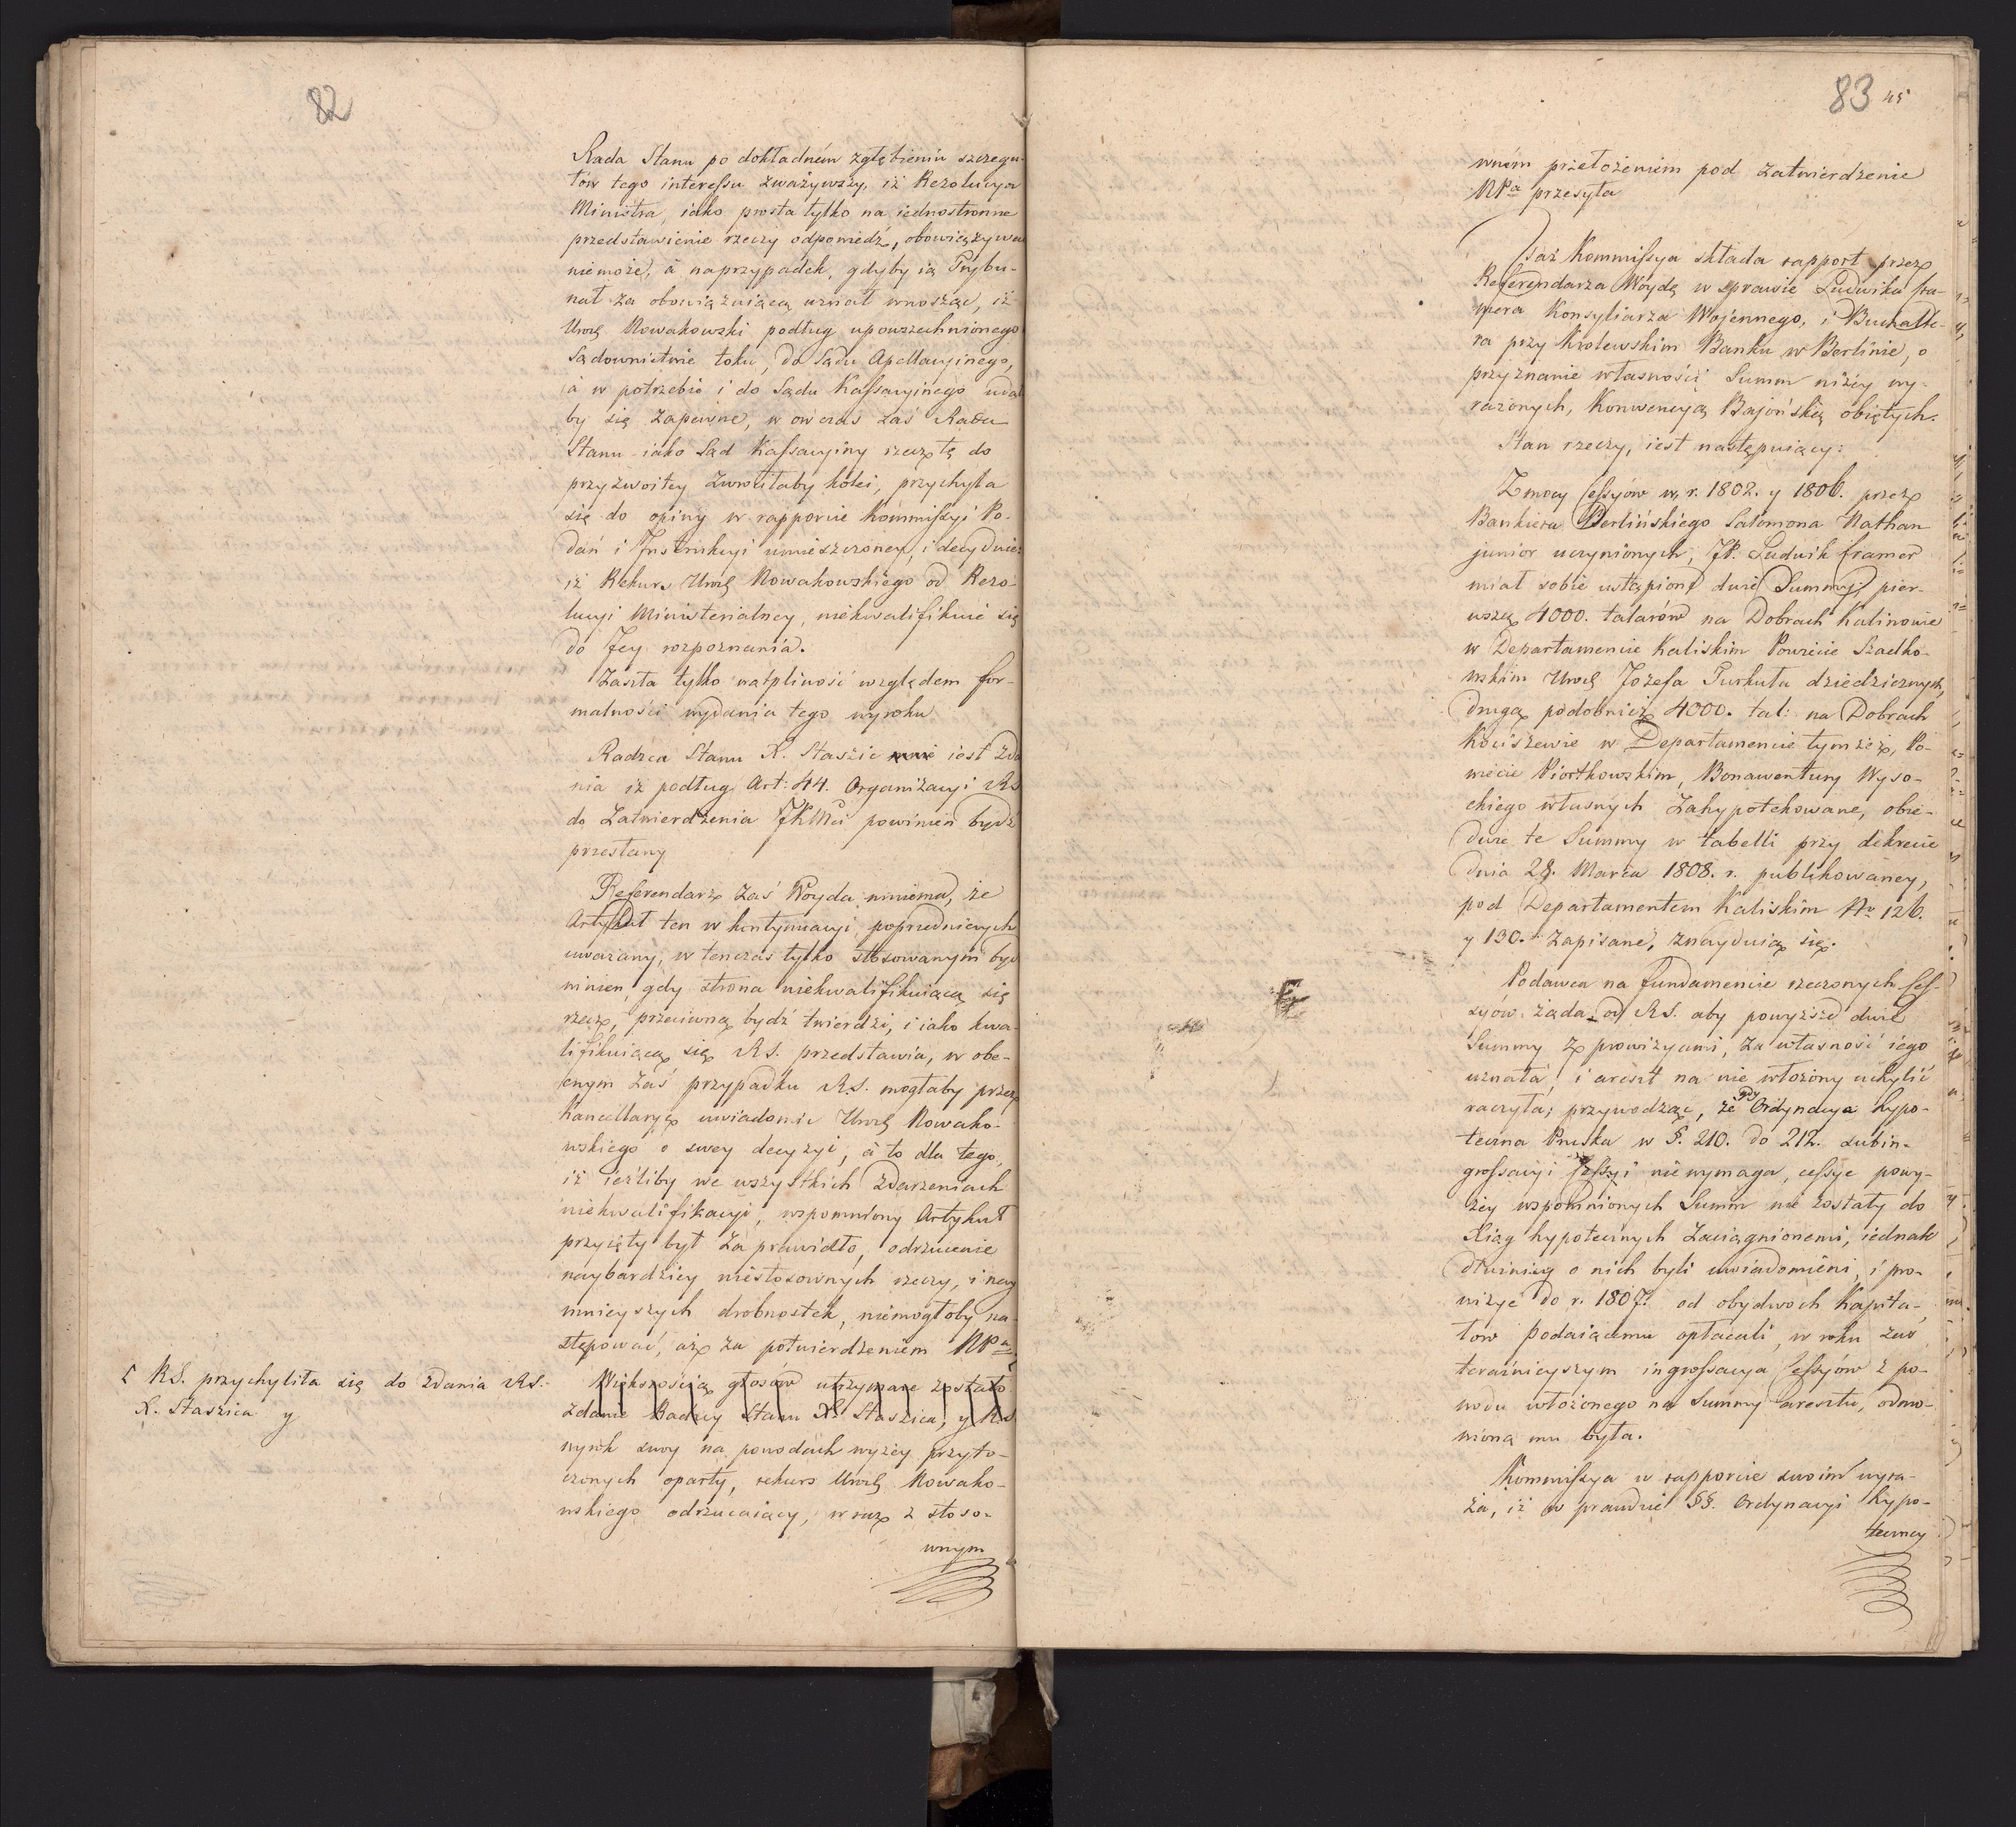 82
Rada Stanu po dokładném zgłębieniu szczegu-
łów tego interessu zważywszy, iż Rezolucya
Ministra, iako prosta tylko na iednostronne
przedstawienie rzeczy odpowiedź, obowiązywać
niemoże, à naprzypadek, gdyby ią Trybu-
nał za obowiązuiącą uznał wnosząc, iż
Urod. Nowakowski podług upowszechnionego
Sądownictwie toku, do Sądu Apellacyinego,
à w potrzebie i do Sądu Kassacyinego udał
by się zapewne, w owczas zaś Rada
Stanu iako Sąd Kassacyiny rzecz tę do
przyzwoitey zwróciłaby kolei, przychyla
się do opinij w rapporcie Kommissyi Po-
dań i Instrukcyi umieszczoney, i decyduie:
iż Rekurs Urod. Nowakowskiego od Rezo-
lucyi Ministerialney, niekwalifikuie się
do Jey rozpoznania.
Zaszła tylko wątpliwość względem for-
malności wydania tego wyroku
Radzca Stanu X. Staszic iest zda
nia iż podług Art: 44. Organizacyi RS
do Zatwierdzenia JKMci powinien bydź
przesłany
Referendarz zaś Woyda mniema, że
Artykuł ten w kontynuacyi poprzedniczych
uważany, w tenczas tylko stosowanym byd
winien, gdy strona niekwalifikuiącą się
rzecz, przeciwną bydź twierdzi, i iako kwa-
lifikuiącą się RS. przedstawia, w obe-
cnym zaś przypadku RS. mogłaby przez
Kancellaryę uwiadomić Urod. Nowako-
wskiego o swey decyzyi, à to dla tego,
iż ieżliby we wszystkich zdarzeniach
niekwalifikacyi, wspomniony Artykuł
przyięty był za prawidło, odrzucenie
naybardziey niestosownych rzeczy, i nay
mnieyszych drobnostek, niemogłoby na-
stępować, aż za potwierdzeniem NPa
[ RS. przychyliła się do zdania RS.
X. Staszica y
Większością głosów utrzymane zostało
zdanie Radcy Stanu X. Staszica, y RS
wyrok swoy na powodach wyżey przyto-
czonych oparty, rekurs Urod. Nowako-
wskiego odrzucaiący, wraz z stoso-
wnym
83 45
wném przełożeniem pod zatwierdzenie
NPa przesyła
Taż Kommissya składa rapport przez
Referendarza Woydę w sprawie Ludwika Kra-
mera Konsyliarza Woiennego, i Buchalte-
ra przy Krolewskim Banku w Berlinie, o
przyznanie własności Summ niżey wy-
rażonych, Konwencyą Bajońską obiętych.
Stan rzeczy, iest następuiący:
Z mocy Cessyów w r. 1802. y 1806. przez
Bankiera Berlińskiego Salomona Nathan
junior uczynionych, JP. Ludwik Cramer
miał sobie ustąpione dwie Summy, pier-
wszą 4000. talarów na Dobrach Kalinowie
w Departamencie Kaliskim Powiecie Szadko-
wskim Urod. Jozefa Turkuła dziedzicznych,
drugą podobnież 4000. tal: na Dobrach
Kociszewie w Departamencie tymże, Po-
wiecie Piortkowskim, Bonawentury Wyso-
ckiego własnych zahypotekowane, obie-
dwie te Summy w tabelli przy dekrecie
dnia 28. Marca 1808. r. publikowaney,
pod Departamentem Kaliskim No 126.
y 130. Zapisane, znayduią się.
Podawca na fundamencie rzeczonych Ces-
syów żąda od RS. aby powyższe dwie
Summy z prowizyami, za własność iego
uznała, i areszt na nie włożony uchylić
raczyła; przywodząc, że gdy Ordynacya hypo-
teczna Pruska w §. 210. do 212. subin-
grossacyi Cessyi niewymaga, cessye powy-
żey wspomnionych Summ nie zostały do
Xiąg hypotecznych zaciągnionemi, iednak
dłużnicy o nich byli uwiadomieni, i pro-
wizye do r. 1807. od obydwoch Kapita-
łow Podaiącemu opłacali, w roku zaś
teraźnieyszym ingrossacya Cessyów z po-
wodu włożonego na Summy aresztu, odmo-
wioną mu była.
Kommissya w rapporcie swoim wyra-
ża, iż w prawdzie §§. Ordynacyi hypo-
teczney